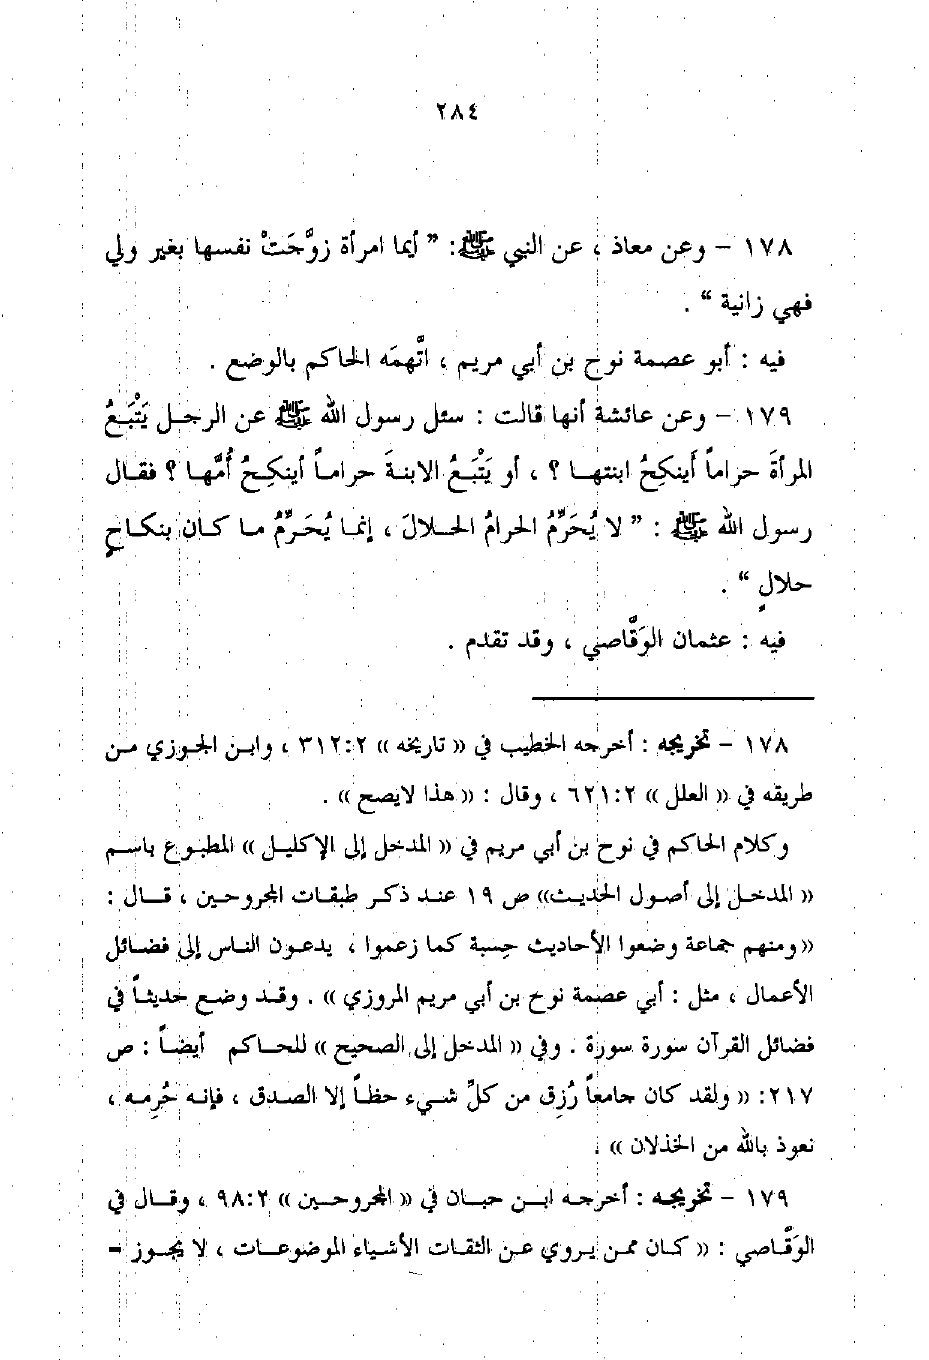 ٢٨٤
١٧٨ – وعن معاذ ، عن النبي ﷺ: ” أيما امرأة زوَّجَتْ نفسها بغير ولي
فهي زانية “ .
فيه : أبو عصمة نوح بن أبي مريم ، اتَّهمَه الحاكم بالوضع .
١٧٩ – وعن عائشة أنها قالت : سئل رسول الله ﷺ عن الرجل يَتْبَعُ
المرأةَ حراماً أَينكِحُ ابنتها ؟ ، أو يَتْبَعُ الابنةَ حراماً أينكِحُ أُمَّها ؟ فقال
رسول الله ﷺ : ” لا يُحَرِّمُ الحرامُ الحلالَ ، إنما يُحَرِّمُ ما كان بنكاحٍ
حلالٍ “ .
فيه : عثمان الوَقَّاصي ، وقد تقدم .
١٧٨ – تخريجه : أخرجه الخطيب في « تاريخه » ٣١٢:٢ ، وابن الجوزي من
طريقه في « العلل » ٦٢١:٢ ، وقال : « هذا لايصح » .
وكلام الحاكم في نوح بن أبي مريم في « المدخل إلى الإكليل » المطبوع باسم
« المدخل إلى أصول الحديث» ص ١٩ عند ذكر طبقات المجروحين ، قال :
«ومنهم جماعة وضعوا الأحاديث حِسبة كما زعموا ، يدعون الناس إلى فضائل
الأعمال ، مثل : أبي عصمة نوح بن أبي مريم المروزي » . وقد وضع حديثاً في
فضائل القرآن سورة سورة . وفي « المدخل إلى الصحيح » للحاكم أيضاً : ص
٢١٧: « ولقد كان جامعاً رُزِق من كلِّ شيء حظاً إلا الصدق ، فإنه حُرِمه ،
نعوذ بالله من الخذلان » .
١٧٩ – تخريجه : أخرجه ابن حبان في « المجروحين » ٩٨:٢ ، وقال في
الوَقَّاصي : « كان ممن يروي عن الثقات الأشياء الموضوعات ، لا يجوز =